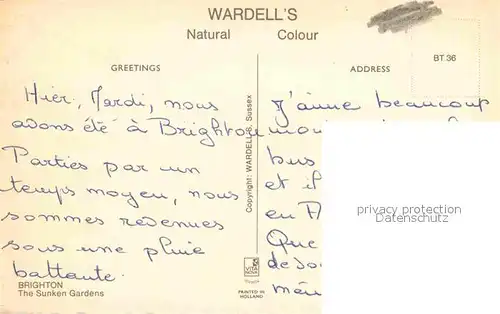 WARDELL'S
Natural Colour
BT.36
GREETINGS
ADDRESS
Hier, Mardi, nous
avons été à Brighton
Parties par un
temps moyen, nous
sommes revenues
sous une pluie
battante.
BRIGHTON
The Sunken Gardens
Copyright: WARDELL'S, Sussex
PRINTED IN
HOLLAND
J'aime beaucoup
bus
et il
en
Que
même
privacy protection
Datenschutz